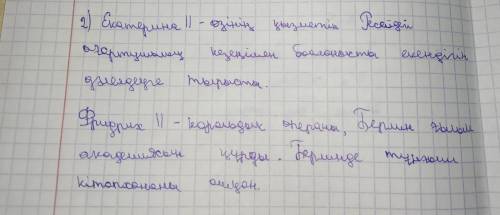 2) Екатерина II - өзінің қызметін Ресейдің
ағартушылық кезеңімен байланыста екендігін
дәлелдеуге тырысты.
Фридрих II - корольдық операны, Берлин ғылым
академиясын құрды. Берлинде тұңғыш
кітапхананы ашқан.